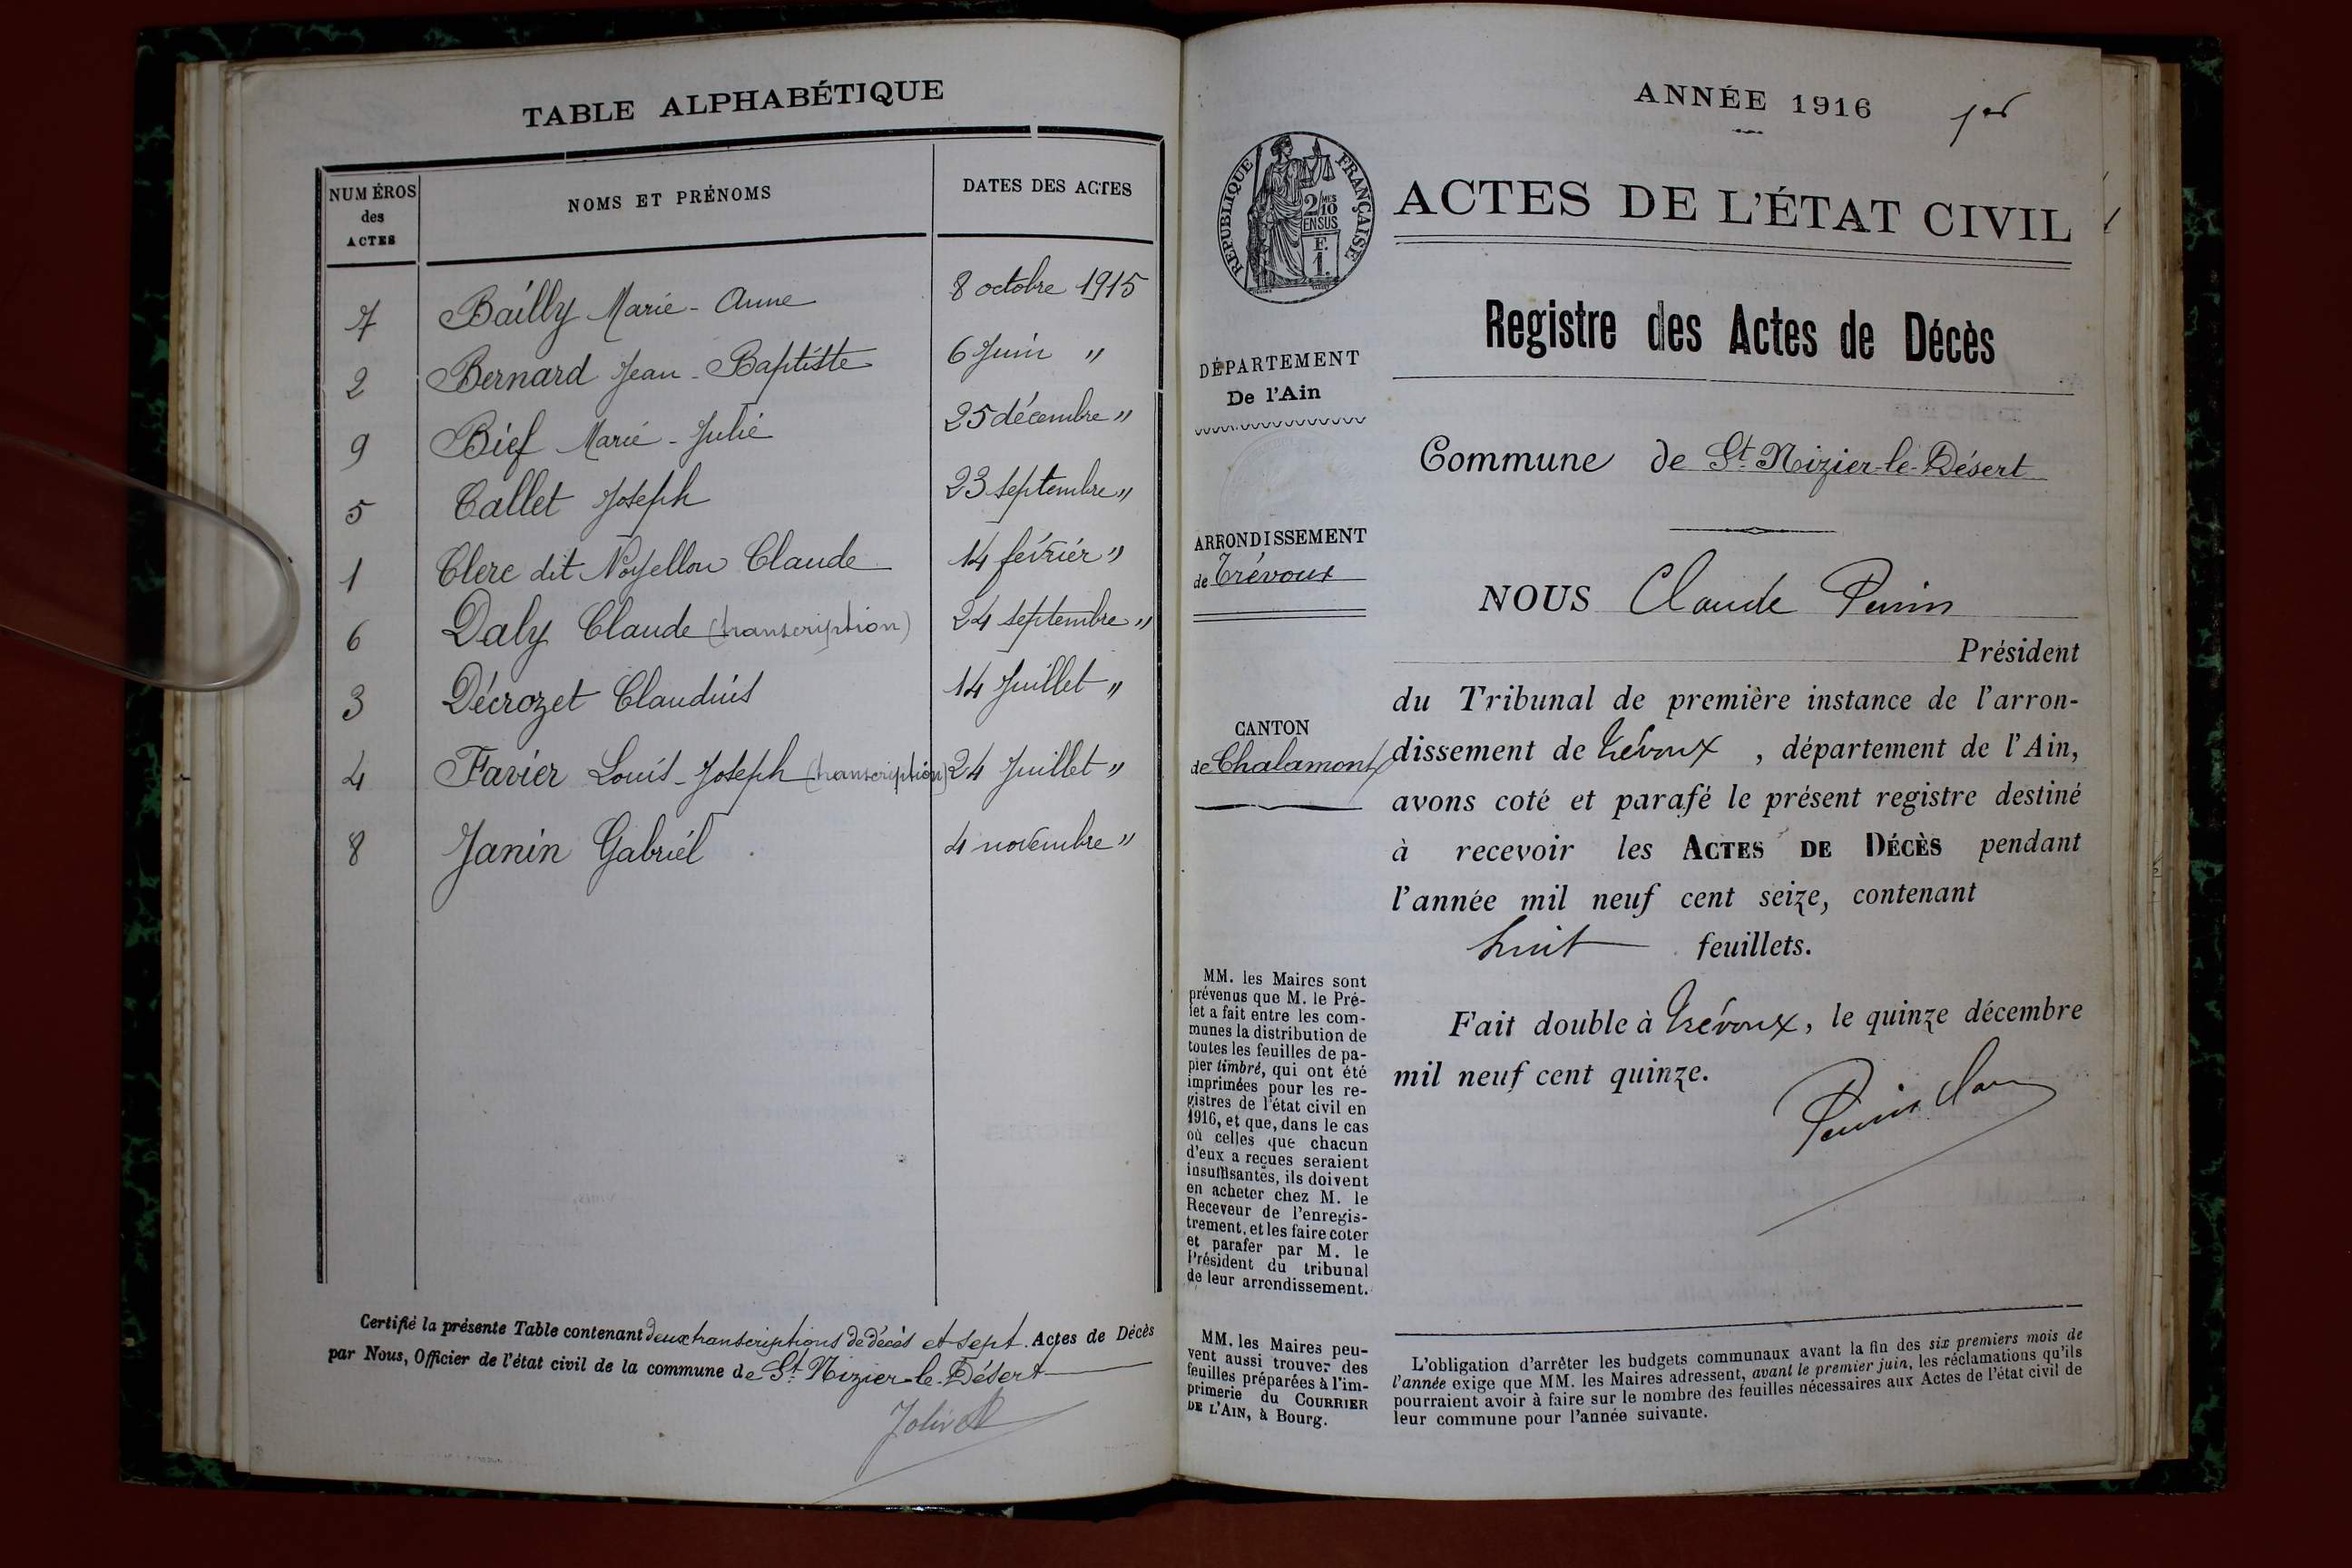 TABLE ALPHABÉTIQUE
NUMÉROS
des
ACTES
NOMS ET PRÉNOMS
DATES DES ACTES
7 Bailly Marie-Anne 8 octobre 1915
2 Bernard Jean-Baptiste 6 Juin "
9 Bief Marie-Julie 25 décembre "
5 Callet Joseph 23 septembre "
1 Clerc dit Noyellon Claude 14 février "
6 Daly Claude (transcription) 24 septembre "
3 Décrozet Claudius 14 Juillet "
4 Favier Louis-Joseph (transcription) 24 Juillet "
8 Janin Gabriel 4 novembre "
Certifié la présente Table contenant deux transcriptions de décès et sept Actes de Décès
par Nous, Officier de l'état civil de la commune de St Nizier-le-Désert
ANNÉE 1916
1er
RÉPUBLIQUE FRANÇAISE
2/10 MES
EN SUS
F.
1.
ACTES DE L'ÉTAT CIVIL
Registre des Actes de Décès
DÉPARTEMENT
De l'Ain
ARRONDISSEMENT
de Trévoux
CANTON
de Chalamont
MM. les Maires sont
prévenus que M. le Pré-
fet a fait entre les com-
munes la distribution de
toutes les feuilles de pa-
pier timbré, qui ont été
imprimées pour les re-
gistres de l'état civil en
1916, et que, dans le cas
où celles que chacun
d'eux a reçues seraient
insuffisantes, ils doivent
en acheter chez M. le
Receveur de l'enregis-
trement, et les faire coter
et parafer par M. le
Président du tribunal
de leur arrondissement.
MM. les Maires peu-
vent aussi trouver des
feuilles préparées à l'im-
primerie du COURRIER
DE L'AIN, à Bourg.
Commune de St Nizier-le-Désert
NOUS Claude Perrin
Président
du Tribunal de première instance de l'arron-
dissement de Trévoux, département de l'Ain,
avons coté et parafé le présent registre destiné
à recevoir les ACTES DE DÉCÈS pendant
l'année mil neuf cent seize, contenant
huit feuillets.
Fait double à Trévoux, le quinze décembre
mil neuf cent quinze.
L'obligation d'arrêter les budgets communaux avant la fin des six premiers mois de
l'année exige que MM. les Maires adressent, avant le premier juin, les réclamations qu'ils
pourraient avoir à faire sur le nombre des feuilles nécessaires aux Actes de l'état civil de
leur commune pour l'année suivante.